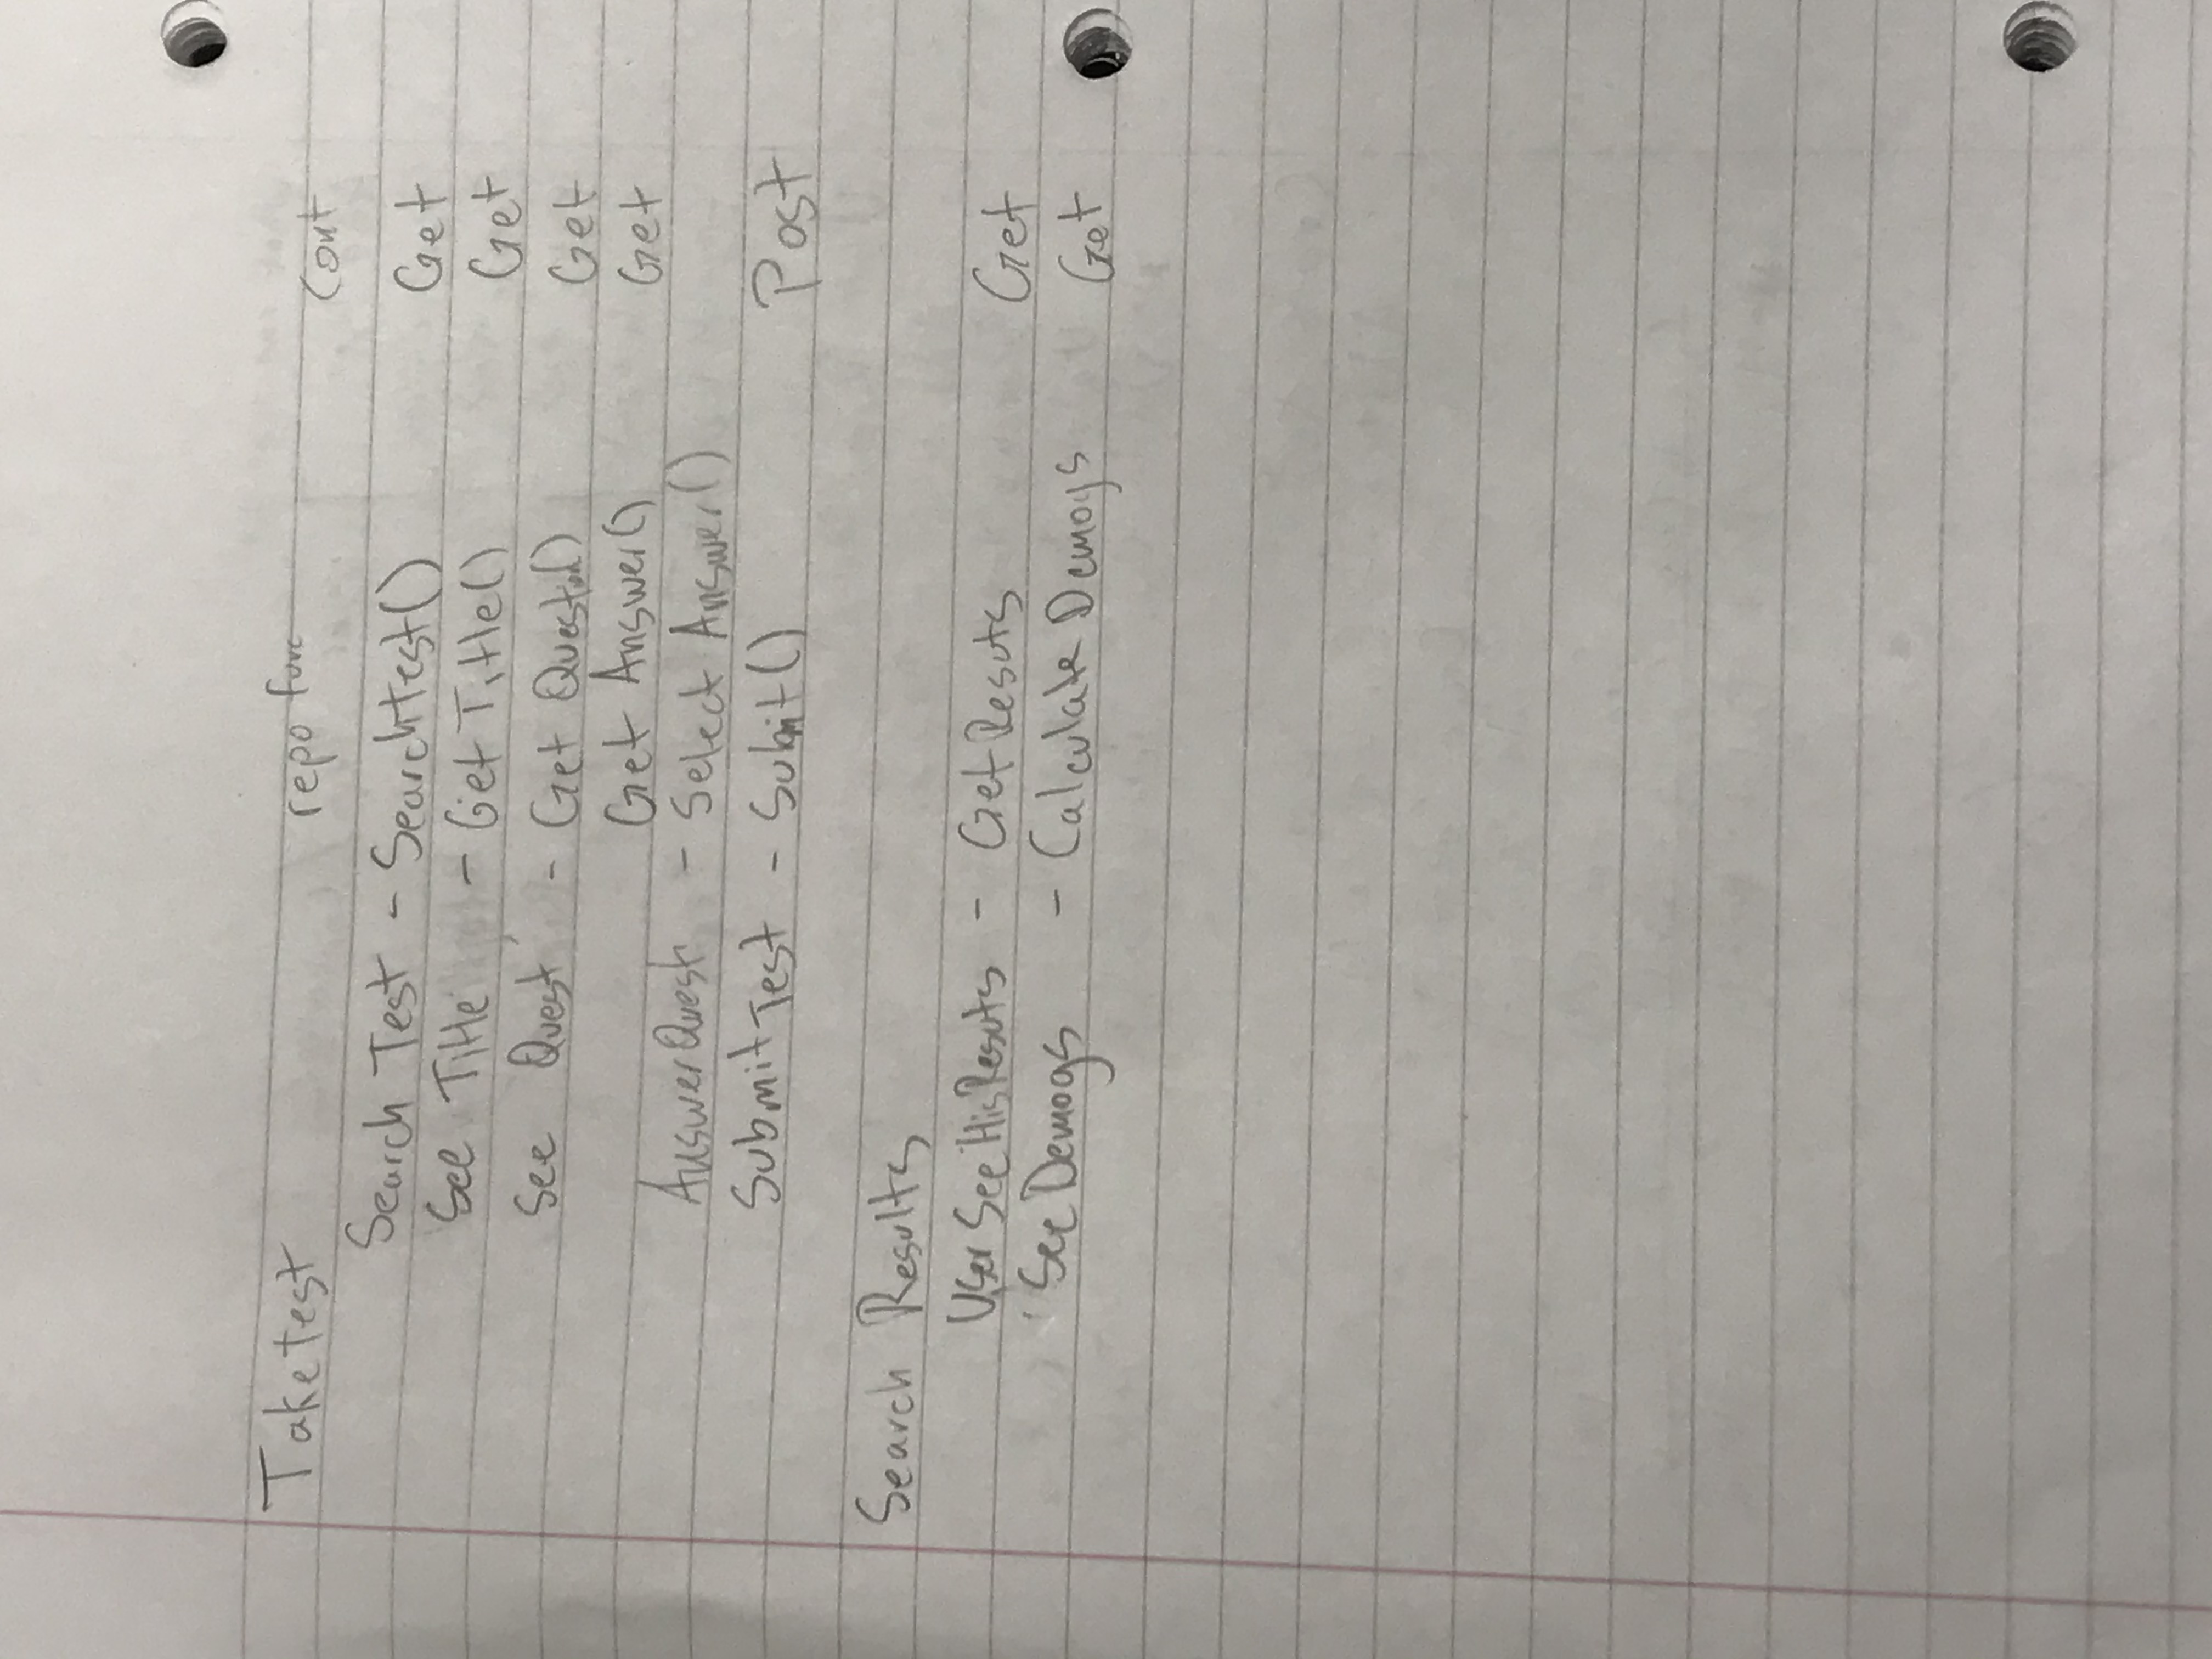 Take test repo func Cont
Search Test - Searchtest() Get
See Title - Get Title() Get
See Quest - Get Question() Get
Get Answer() Get
AnswerQuest - Select Answer()
Submit Test - Submit() Post
Search Results
User See His Resuts - Get Resuts Get
See Demogs - Calculate Demogs Get